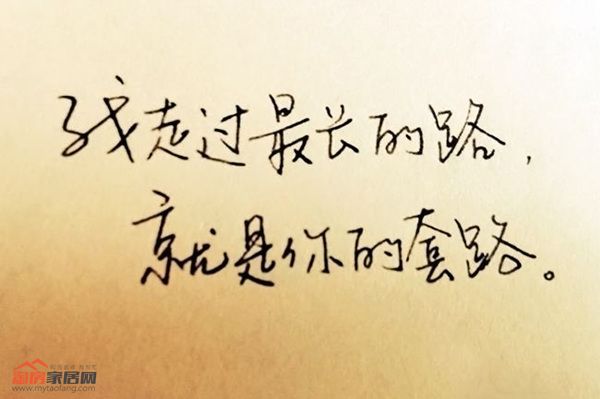 我走过最长的路，
就是你的套路。
淘房家居网
www.mytaofang.com